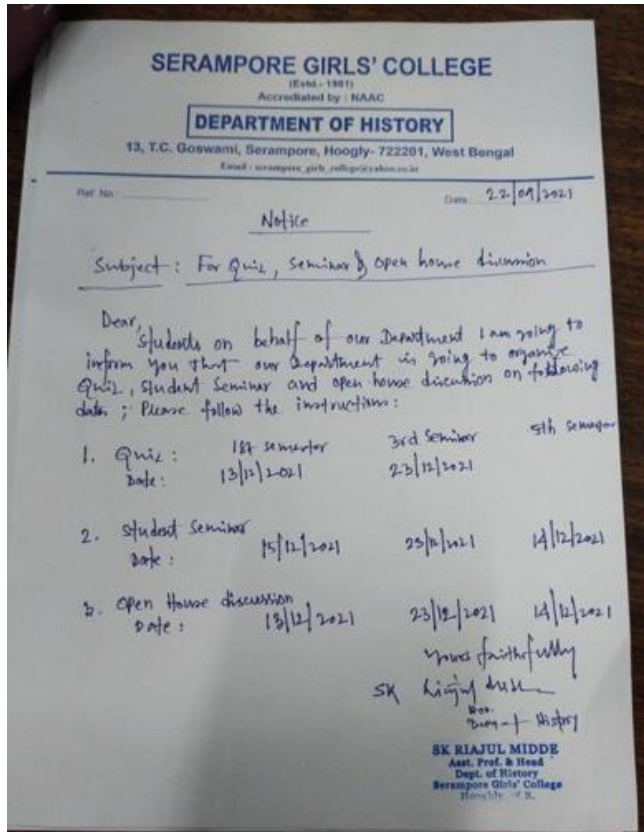 SERAMPORE GIRLS' COLLEGE
(Estd.- 1981)
Accrediated by : NAAC
DEPARTMENT OF HISTORY
13, T.C. Goswami, Serampore, Hoogly- 722201, West Bengal
Email : serampore_girls_college@yahoo.co.in
Ref. No. Date : 22/09/2021
Notice
Subject : For Quiz, Seminar & open house discussion
Dear,
Students on behalf of our Department I am going to
inform you that our Department is going to organise
Quiz, student Seminar and open house discussion on following
dates ; Please follow the instructions :
1st semester 3rd Seminar 5th semester
1. Quiz :
Date : 13/12/2021 23/12/2021
2. Student Seminar
Date : 15/12/2021 23/12/2021 14/12/2021
3. Open House discussion
Date : 13/12/2021 23/12/2021 14/12/2021
Yours faithfully
SK
History
SK RIAJUL MIDDE
Asst. Prof. & Head
Dept. of History
Serampore Girls' College